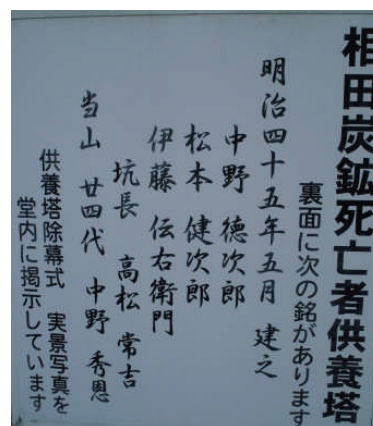 相田炭鉱死亡者供養塔
裏面に次の銘があります
明治四十五年五月 建之
中野 徳次郎
松本 健次郎
伊藤 伝右衛門
坑長 高松 常吉
当山 廿四代 中野 秀恩
供養塔除幕式 実景写真を
堂内に掲示しています